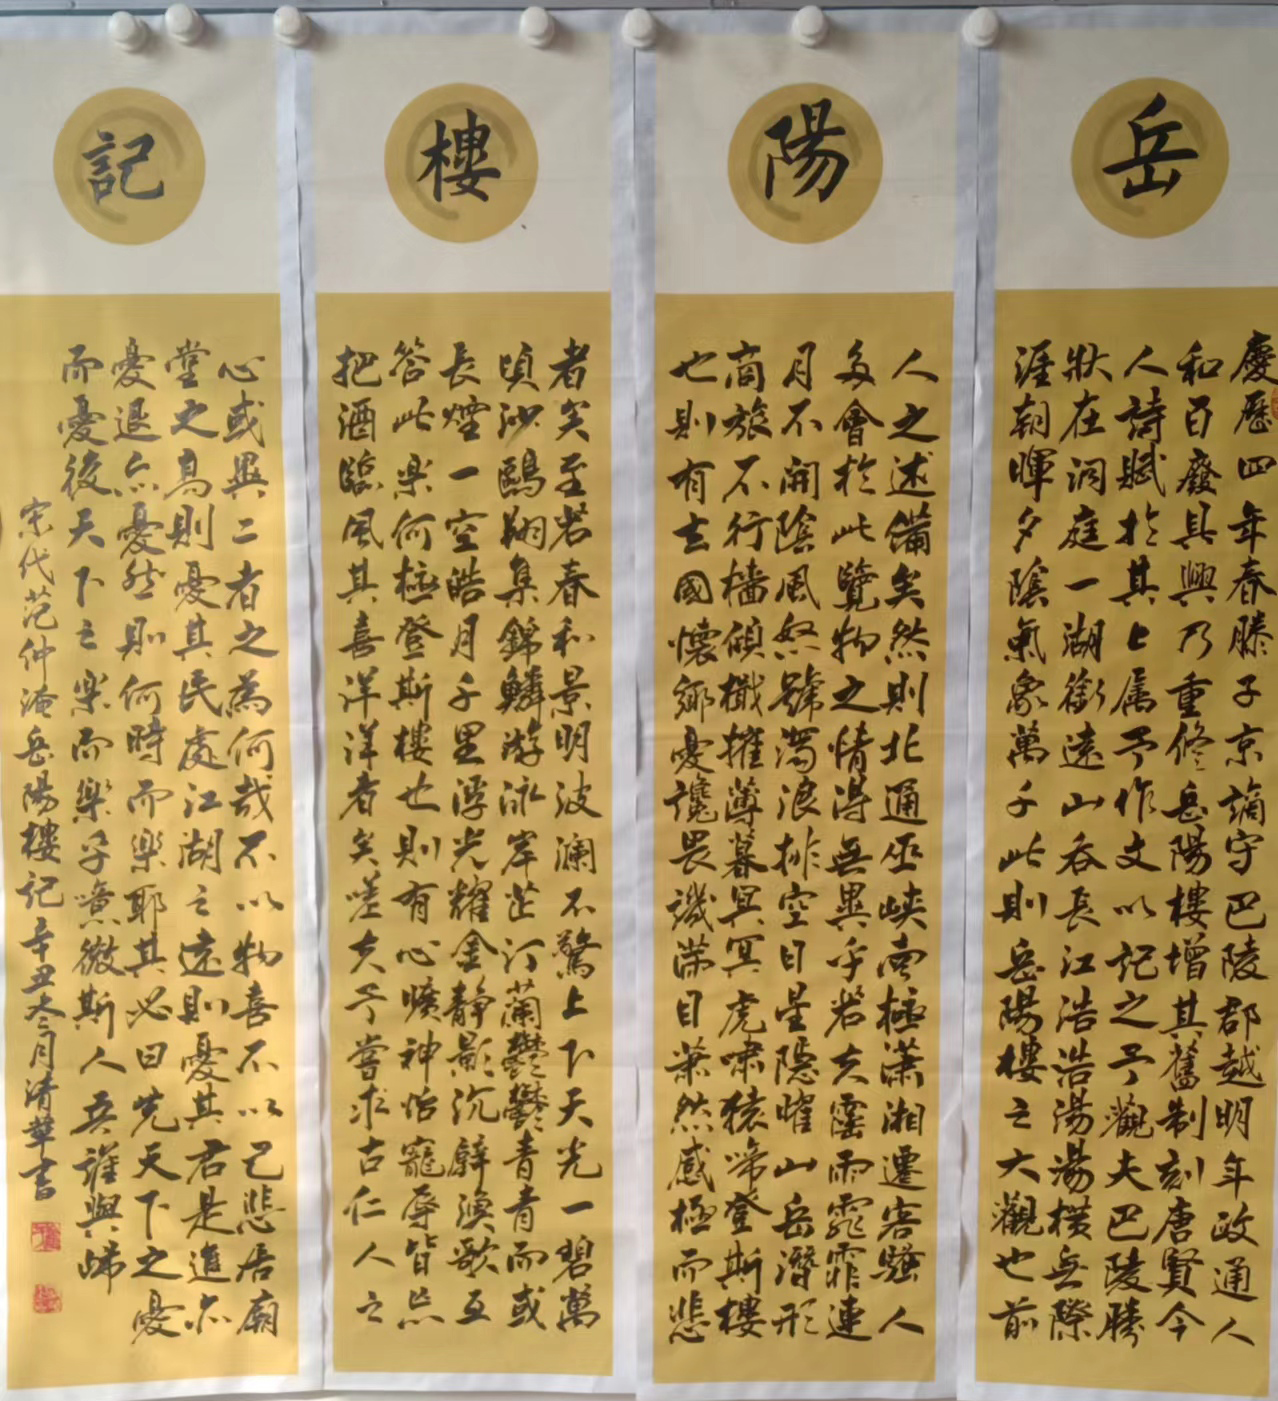 岳
陽
樓
記
慶歷四年春滕子京謫守巴陵郡越明年政通人
和百廢具興乃重修岳陽樓增其舊制刻唐賢今
人詩賦於其上属予作文以記之予觀夫巴陵勝
狀在洞庭一湖銜遠山吞長江浩浩湯湯橫無際
涯朝暉夕陰氣象萬千此則岳陽樓之大觀也前
人之述備矣然則北通巫峽南極瀟湘遷客騷人
多會於此覽物之情得無異乎若夫霪雨霏霏連
月不開陰風怒號濁浪排空日星隱曜山岳潛形
商旅不行檣傾檝摧薄暮冥冥虎嘯猿啼登斯樓
也則有去國懷鄉憂讒畏譏滿目蕭然感極而悲
者矣至若春和景明波瀾不驚上下天光一碧萬
頃沙鷗翔集錦鱗游泳岸芷汀蘭鬱鬱青青而或
長煙一空皓月千里浮光耀金静影沉璧漁歌互
答此樂何極登斯樓也則有心曠神怡寵辱皆忘
把酒臨風其喜洋洋者矣嗟夫予嘗求古仁人之
心或異二者之為何哉不以物喜不以己悲居廟
堂之高則憂其民處江湖之遠則憂其君是進亦
憂退亦憂然則何時而樂耶其必曰先天下之憂
而憂後天下之樂而樂乎噫微斯人吾誰與歸
宋代范仲淹岳陽樓記辛丑冬月清華書